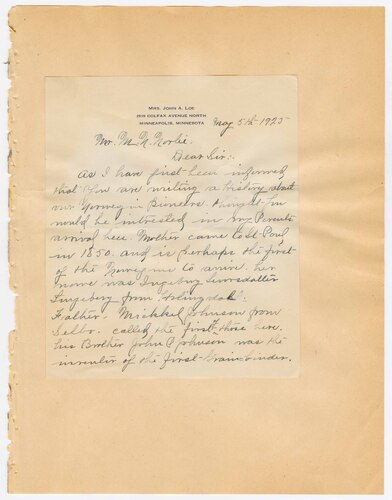 MRS. JOHN A. LOE
2619 COLFAX AVENUE NORTH
MINNEAPOLIS, MINNESOTA
May 5th - 1925
Mr. M. N. Norlie
Dear Sir:-
As I have just been informed
that you are writing a history about
our Norwegian Pioneers thought you
would be intrested in my Parents
arrival here. Mother came to St. Paul
in 1850. and is perhaps the first
of the Norwegine to arrive. her
name was Ingeborg
Ingeborg from
Father. Mickkel Johnson from
Selbo. called the first those here.
his Brother John P Johnson was the
inventer of the first Grain binder.